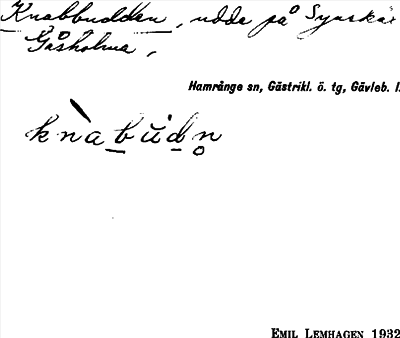 Knabbudden, udde på Synskär
Gåsholma,
Hamrånge sn, Gästrikl. ö. tg, Gävleb. l.
knàbŭdn̥
EMIL LEMHAGEN 1932